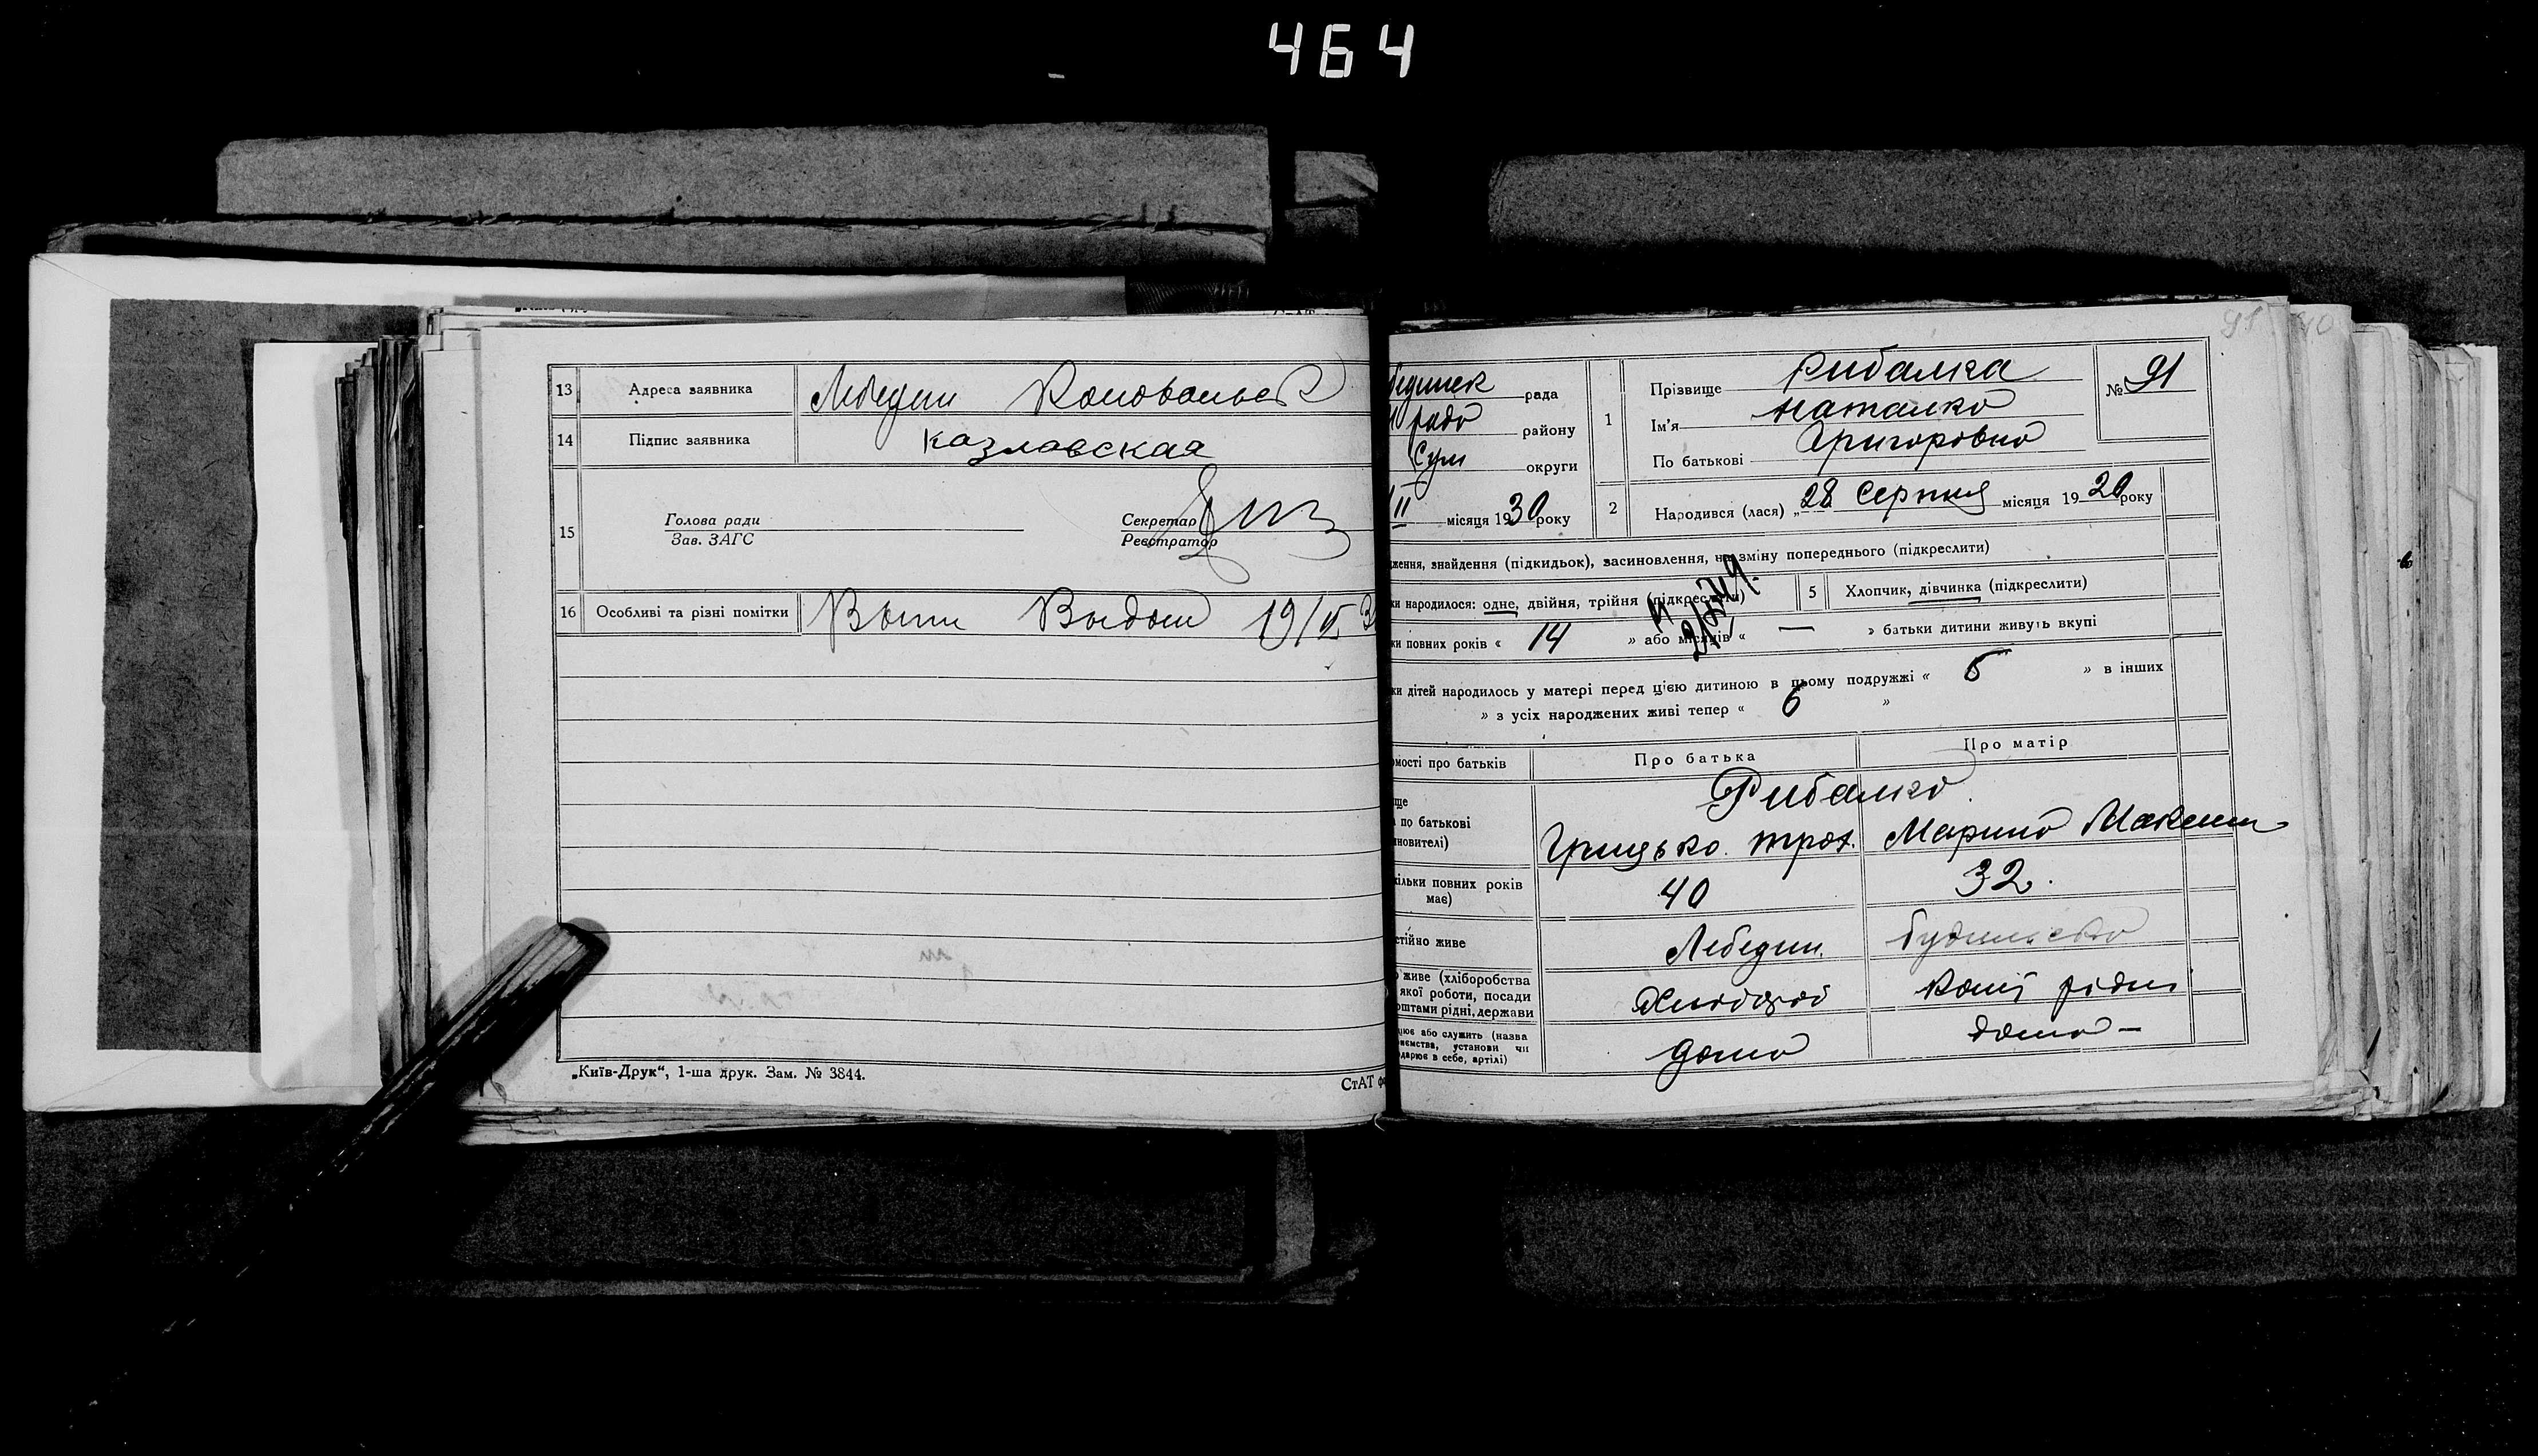 464
13 Адреса заявника Лебедин
14 Підпис заявника Казловская
15 Голова ради
Зав. ЗАГС
Секретар
Реєстратор
16 Особливі та різні помітки Выпи Выдан 19/VI 3
„Київ-Друк“, 1-ша друк. Зам. № 3844.
СтАТ
рада
району
Сум округи
II місяця 1930 року
1 Прізвище Рибалка
Ім'я Наталка
По батькові Григоровна
№ 91
2 Народився (лася) „28 Серпня місяця 1920 року
ження, знайдення (підкидьок), засиновлення, на зміну попереднього (підкреслити)
ки народилося: одне, двійня, трійня (підкреслити)
5 Хлопчик, дівчинка (підкреслити)
ки повних років « 14 » або місяців « — » батьки дитини живуть вкупі
ки дітей народилось у матері перед цією дитиною в цьому подружжі « 6 » в інших
» з усіх народжених живі тепер « 6 »
мості про батьків Про батька Про матір
ще
по батькові
новителі)
Рибалко
Грицько Трох. Марина Максим
кільки повних років
має)
40 32.
стійно живе Лебедин.
живе (хліборобства
якої роботи, посади
оштами рідні, держави
Хлібороб Кошт рідні
цює або служить (назва
ємства, установи чи
дарює в себе, артілі)
дома дома —